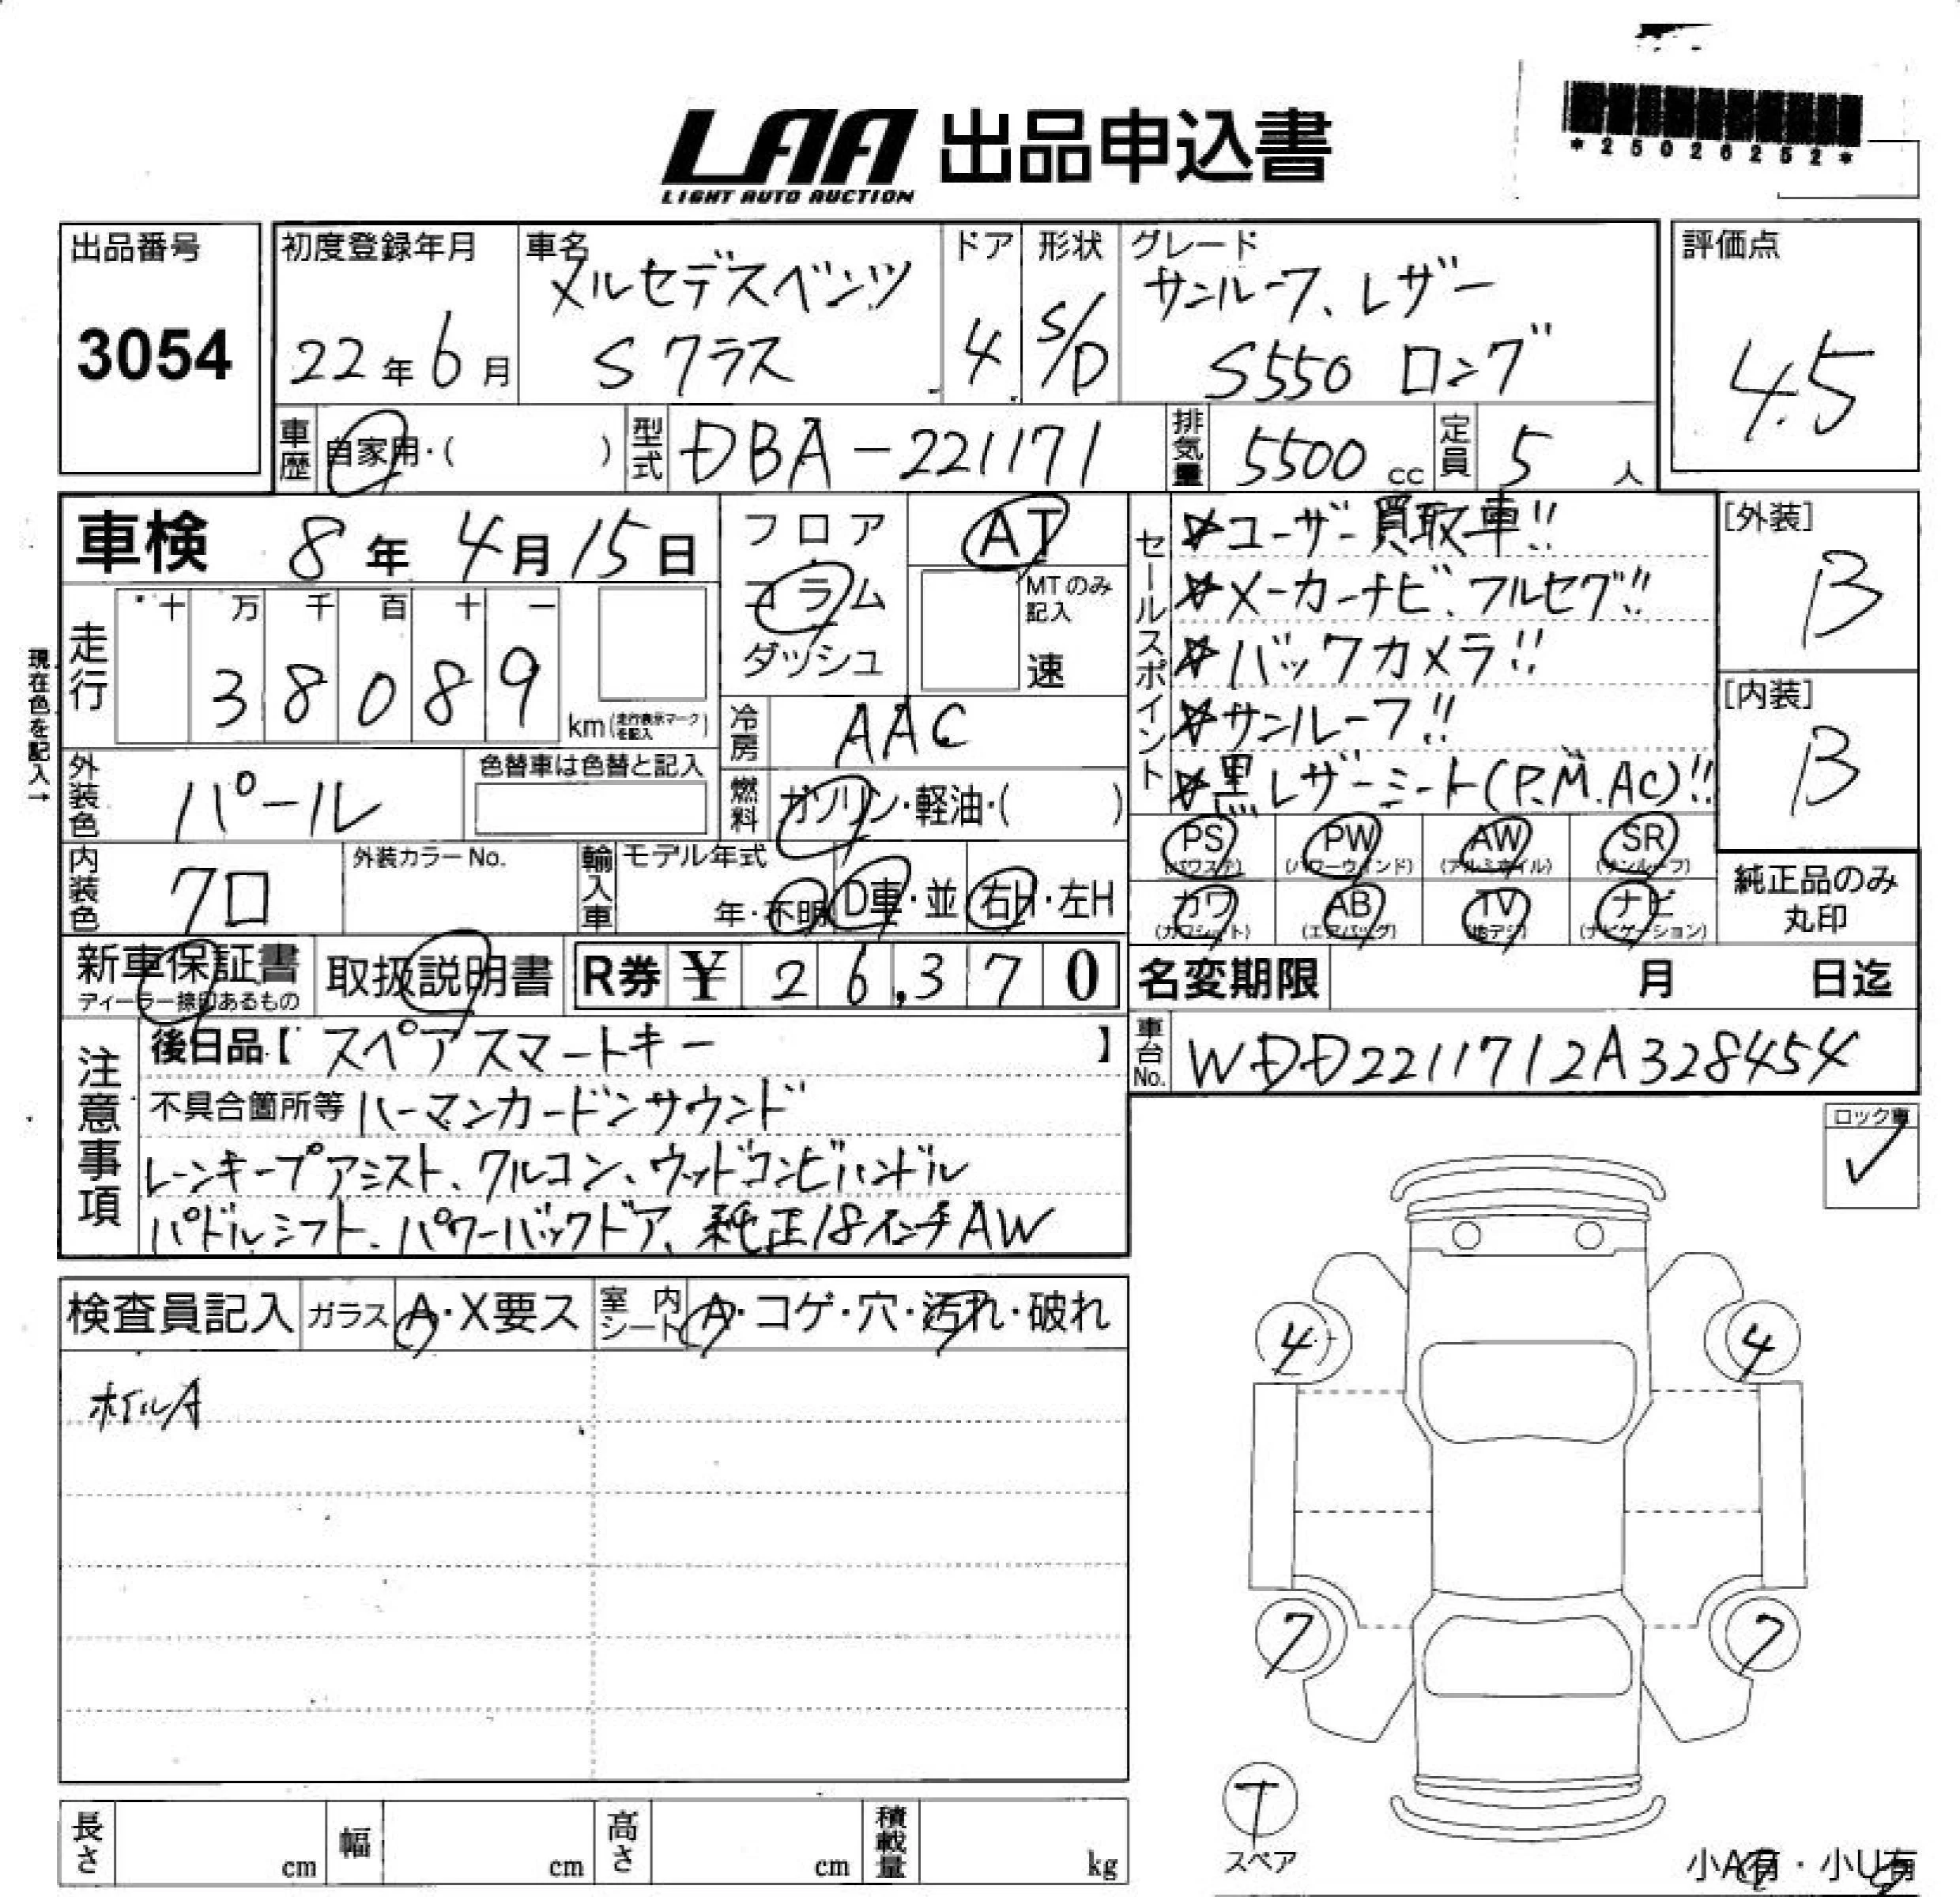 *25026252*
LAA 出品申込書
LIGHT AUTO AUCTION
出品番号
3054
初度登録年月
22年6月
車名
メルセデスベンツ
Sクラス
ドア
4
形状
S/D
グレード
サンルーフ、レザー
S550 ロング
評価点
4.5
車歴
自家用・( )
型式
DBA-221171
排気量
5500 cc
定員
5 人
車検 8年 4月 15日
現在色を記入→
走行
十 万 千 百 十 一
3 8 0 8 9
km(走行表示マークを記入)
フロア
コラム
ダッシュ
AT
MTのみ記入
速
冷房
AAC
燃料
ガソリン・軽油・( )
外装色
パール
色替車は色替と記入
内装色
クロ
外装カラーNo.
輸入車
モデル年式
年・不明
D車・並
右H・左H
セールスポイント
☆ユーザー買取車!!
☆メーカーナビ、フルセグ!!
☆バックカメラ!!
☆サンルーフ!!
☆黒レザーシート(P.M.AC)!!
[外装]
B
[内装]
B
PS (パワステ)
PW (パワーウィンド)
AW (アルミホイル)
SR (サンルーフ)
カワ (カワシート)
AB (エアバッグ)
TV (地デジ)
ナビ (ナビゲーション)
純正品のみ
丸印
新車保証書
ディーラー捺印あるもの
取扱説明書
R券 ¥ 26,370
名変期限 月 日迄
車台No.
WDD2211712A328454
注意事項
後日品【 スペアスマートキー 】
不具合箇所等 ハーマンカードンサウンド
レーンキープアシスト、クルコン、ウッドコンビハンドル
パドルシフト、パワーバックドア、純正18インチAW
ロック車
✓
検査員記入
ガラス A・X要ス
室内シート A・コゲ・穴・汚れ・破れ
ホイルA
4
4
7
7
T
スペア
長さ cm
幅 cm
高さ cm
積載量 kg
小A有・小U有